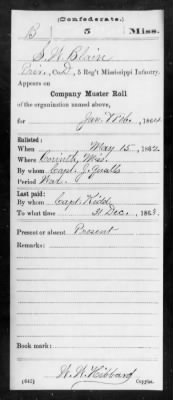 (Confederate.)
B 5 Miss.
S. W. Blaine
Priv., Co. D, 5 Reg't Mississippi Infantry.
Appears on
Company Muster Roll
of the organization named above,
for Jan. & Feb., 1864
Enlisted:
When May 15, 1862.
Where Corinth, Miss.
By whom Capt. J.
Period War.
Last paid:
By whom Capt. Kidd
To what time 31 Dec., 1863.
Present or absent Present
Remarks:
Book mark:
W. W. Hibbard
(642) Copyist.